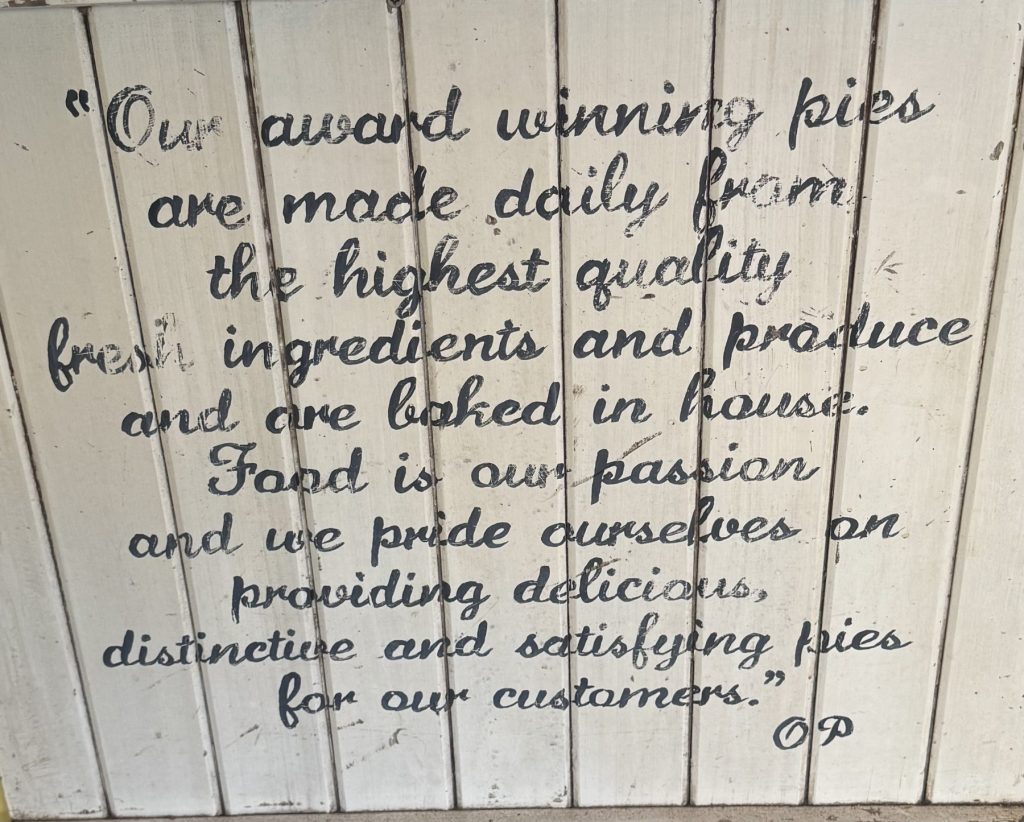 "Our award winning pies
are made daily from
the highest quality
fresh ingredients and produce
and are baked in house.
Food is our passion
and we pride ourselves on
providing delicious,
distinctive and satisfying pies
for our customers."
OP